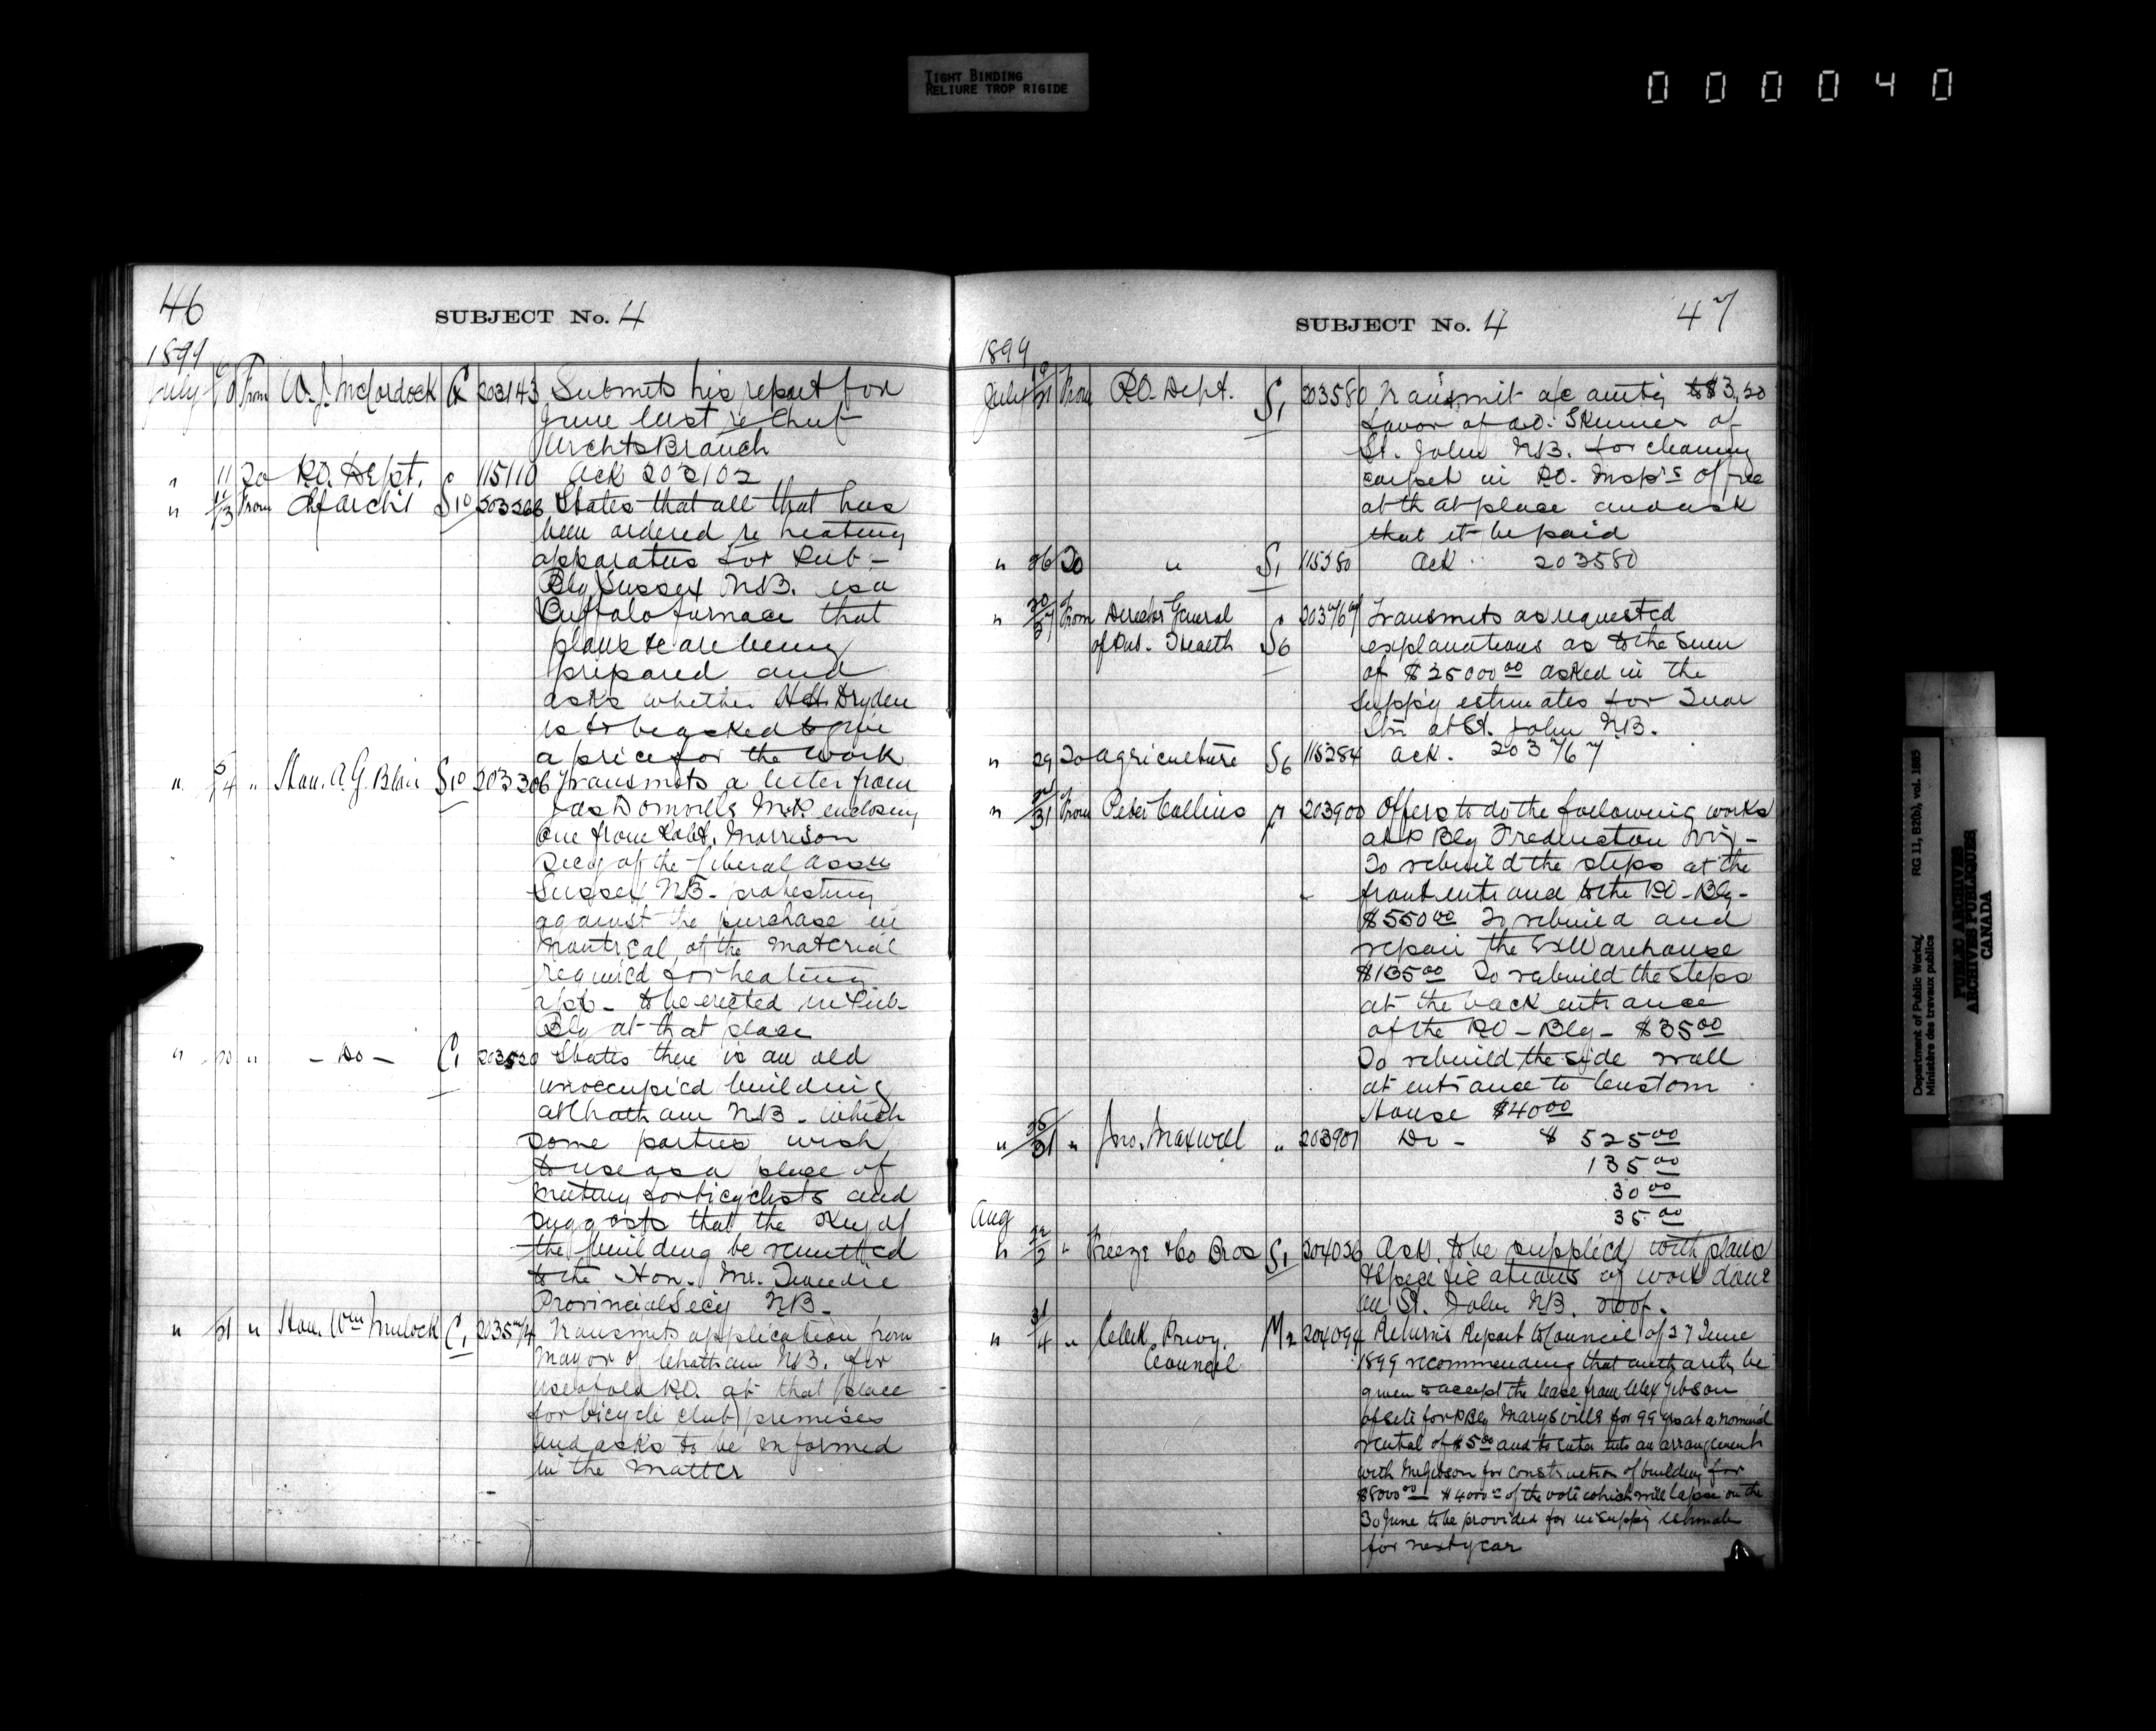 TIGHT BINDING
RELIURE TROP RIGIDE
000040
46
SUBJECT No. 4
1899
July From W. J. McCordock G 203143 Submits his report for
June last re Chief
Archts Branch
" 11 To P.O. Dept. 115110 Ack 203102
" 11/13 From Chf Archt S10 203266 States that all that has
been ordered re heating
apparatus for Pub-
Blg Sussex N.B. is a
Buffalo furnace that
plans &c are being
prepared and
asks whether H.H. Dryden
is to be asked to give
a price for the work
" 5/14 " Hon. A. G. Blair S10 203306 Transmits a letter from
Jas Domville M.P. enclosing
one from Robt. Morrison
Secy of the Liberal Assn
Sussex N.B. protesting
against the purchase in
Montreal, of the material
required for heating
app- to be erected in Pub-
Blg at that place
" 20 " - Do - C1 203520 States there is an old
unoccupied building
at Chatham N.B. which
some parties wish
to use as a place of
meeting for bicyclists and
suggests that the key of
the building be remitted
to the Hon. Mr. Tweedie
Provincial Secy N.B.
" 21 " Hon. Wm Mulock C1 203574 Transmits application from
Mayor of Chatham N.B. for
use of old P.O. at that place
for bicycle club premises
and asks to be informed
in the matter
SUBJECT No. 4
47
1899
July 19/21 From P.O. Dept. S1 203580 Transmit a/c amtg to $3,20
favor of A.O. Skinner of
St. John N.B. for cleaning
carpet in P.O. Insp's office
at that place and ask
that it be paid
" 26 To " S1 115380 Ack 203580
" 20/27 From Director General S6 203767 Transmits as requested
of Pub. Health explanations as to the sum
of $25000 00 asked in the
Suppy estimates for Quar
Stn at St. John N.B.
" 29 To Agriculture S6 115284 Ack. 203767
" 31 From Peter Collins 203900 Offers to do the following works
at P Blg Fredericton viz-
To rebuild the steps at the
front entr and to the P.O-Blg-
$550 00 To rebuild and
repair the Ex Warehouse
$135 00 To rebuild the steps
at the back entrance
of the P.O-Blg- $35 00
To rebuild the side wall
at entrance to Custom
House $40 00
" 25/31 " Jno. Maxwell " 203901 Do - $ 525 00
135 00
30 00
35 00
Aug
" 2 " Freeze & Co Bros S1 204026 Ask to be supplied with plans
& specifications of work done
on St. John N.B. roof.
" 31/4 " Clerk Privy M2 204094 Returns Report to Council of 27 June
Council 1899 recommending that authority be
given to accept the lease from Alex Gibson
of site for P Blg Marysville for 99 yrs at a nominal
rental of $5 00 and to enter into an arrangement
with Mr Gibson for construction of building for
$8000 00 $4000 of the vote which will lapse on the
30 June to be provided for in suppy estimates
for next year
Department of Public Works/
Ministère des travaux publics
RG 11, B2(b), vol. 1885
PUBLIC ARCHIVES
ARCHIVES PUBLIQUES
CANADA